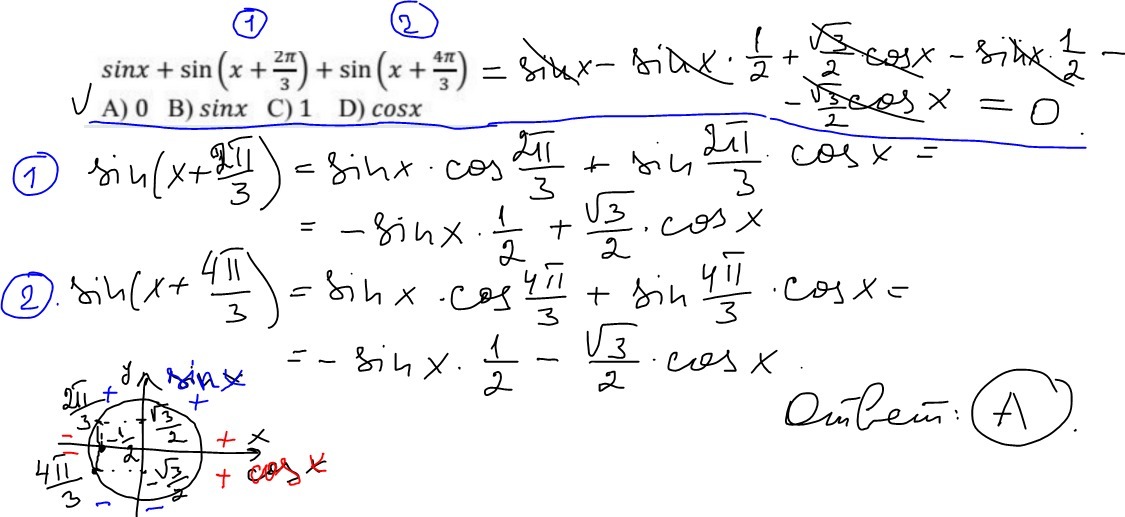 ① ②
sinx + sin(x + 2π/3) + sin(x + 4π/3) = sinx − sinx · 1/2 + √3/2 cosx − sinx · 1/2 −
√ A) 0 B) sinx C) 1 D) cosx − √3/2 cosx = 0.
① sin(x + 2π/3) = sinx · cos 2π/3 + sin 2π/3 · cosx =
= − sinx · 1/2 + √3/2 · cosx
②. sin(x + 4π/3) = sinx · cos 4π/3 + sin 4π/3 · cosx =
= − sinx · 1/2 − √3/2 · cosx.
y sinx
2π/3 + √3/2 +
Ответ: A.
− −1/2 + x
−
4π/3 −√3/2 + cosx
− −